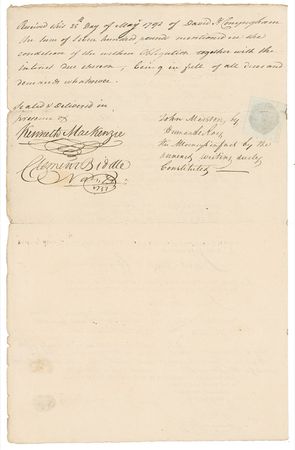 Received this 25th Day of May 1792 of David H. Conyngham
the sum of hundred pound mentioned in the
condition of the within Obligation together with the
interest due thereon; being in full of all dues and
demands whatsoever.
Sealed & Delivered in
presence of
Kenneth MacKenzie
Clement Biddle
John Maxson, by
his Attorney in fact by the
writing duly
Constituted